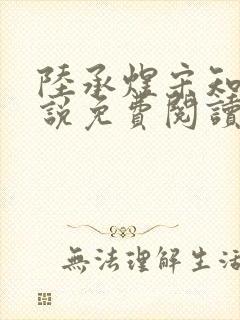 陸承煋宋知
説免費閱讀
無法理解生活